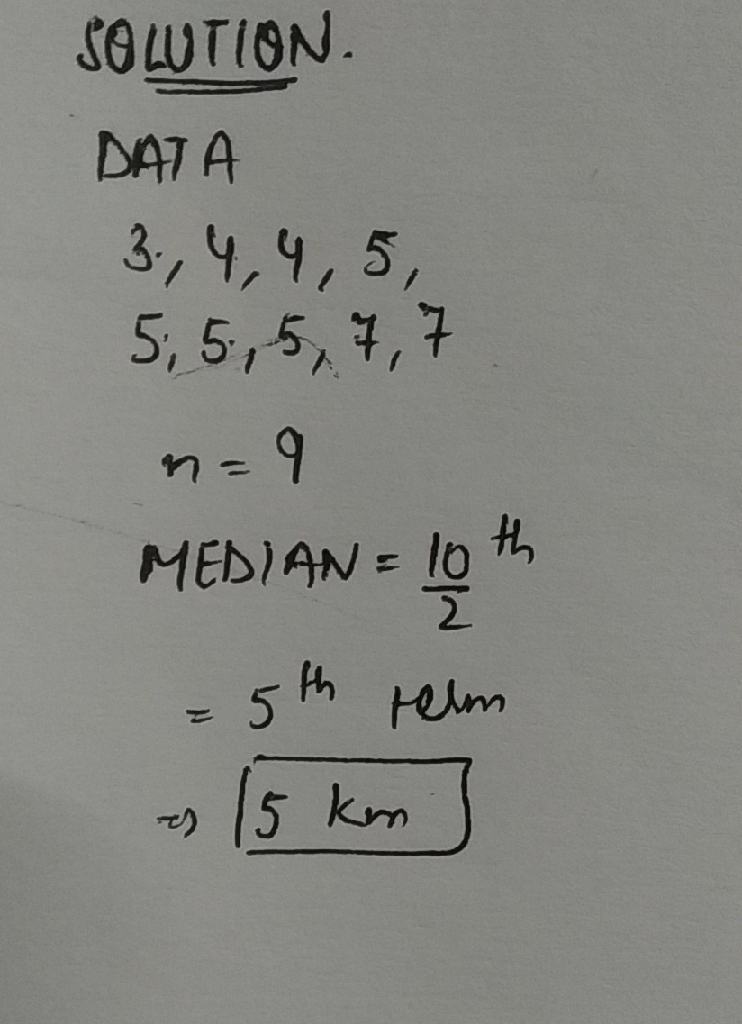 SOLUTION.
DATA
3, 4, 4, 5,
5, 5, 5, 7, 7
n = 9
MEDIAN = 10/2 th
= 5th term
⇒ 5 km